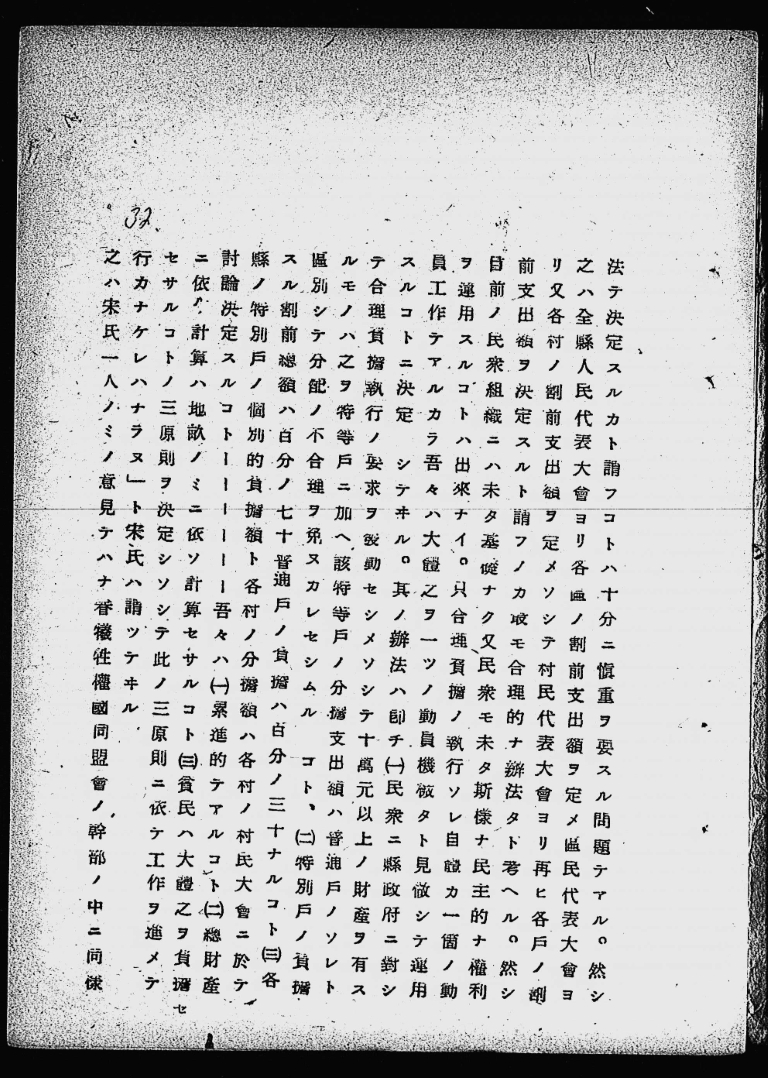 32
法テ決定スルカト謂フコトハ十分ニ愼重ヲ要スル問題テアル。然シ
之ハ全縣人民代表大會ヨリ各區ノ割前支出額ヲ定メ區民代表大會ヨ
リ又各村ノ割前支出額ヲ定メソシテ村民代表大會ヨリ再ヒ各戶ノ割
前支出額ヲ決定スルト謂フノカ最モ合理的ナ辦法タト考ヘル。然シ
目前ノ民衆組織ニハ未タ基礎ナク又民衆モ未タ斯樣ナ民主的ナ權利
ヲ運用スルコトハ出來ナイ。只合理負擔ノ執行ソレ自體カ一箇ノ動
員工作テアルカラ吾々ハ大體之ヲ一ツノ動員機械タト見做シテ運用
スルコトニ決定 シテヰル。其ノ辦法ハ卽チ㈠民衆ニ縣政府ニ對シ
テ合理負擔執行ノ要求ヲ發動セシメソシテ十萬元以上ノ財產ヲ有ス
ルモノハ之ヲ特等戶ニ加ヘ該特等戶ノ分擔支出額ハ普通戶ノソレト
區別シテ分配ノ不合理ヲ免ヌカレセシムル コト、㈡特別戶ノ負擔
スル割前總額ハ百分ノ七十普通戶ノ負擔ハ百分ノ三十ナルコト㈢各
縣ノ特別戶ノ個別的負擔額ト各村ノ分擔額ハ各村ノ村民大會ニ於テ
討論決定スルコトーーーーーー吾々ハ㈠累進的テアルコト㈡總財產
ニ依リ計算ハ地畝ノミニ依ソ計算セサルコト㈢貧民ハ大體之ヲ負擔セ
セサルコトノ三原則ヲ決定シソシテ此ノ三原則ニ依テ工作ヲ進メテ
行カナケレハナラヌ」ト宋氏ハ謂ツテヰル
之ハ宋氏一人ノミノ意見テハナ 犧牲 國同盟會ノ幹部ノ中ニ同樣